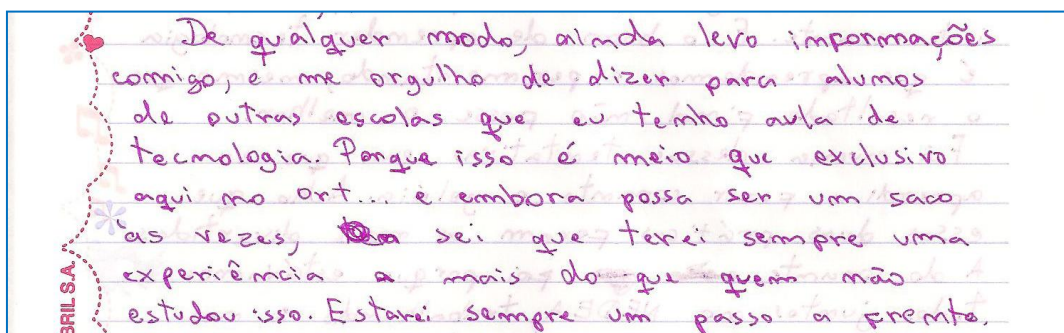 De qualquer modo, ainda levo informações
comigo, e me orgulho de dizer para alunos
de outras escolas que eu tenho aula de
tecnologia. Porque isso é meio que exclusivo
aqui no ort... e embora possa ser um saco
às vezes, sei que terei sempre uma
experiência a mais do que quem não
estudou isso. Estarei sempre um passo a frente.
BRIL S.A.